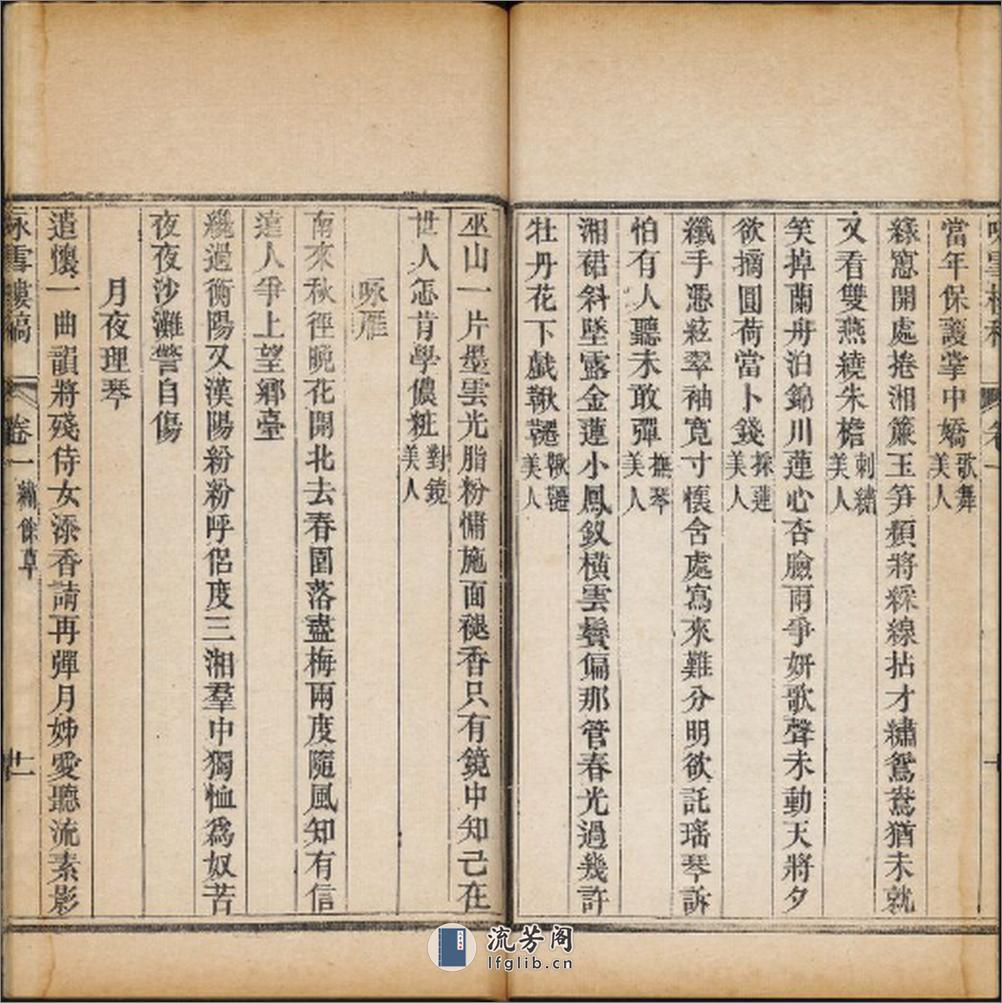 當年保護掌中嬌歌舞美人
綠窻開處捲湘簾玉笋頻將綵線拈才繡鴛鴦猶未就
又看雙燕繞朱檐刺繡美人
笑掉蘭舟泊錦川蓮心杏臉兩爭妍歌聲未動天將夕
欲摘圓荷當卜錢採蓮美人
纖手憑絃翠袖寬寸懷含處寫來難分明欲託瑤琴訴
怕有人聽未敢彈撫琴美人
湘裙斜墜露金蓮小鳳釵橫雲鬢偏那管春光過幾許
牡丹花下戯鞦韆鞦韆美人
巫山一片墨雲光脂粉慵施面褪香只有鏡中知己在
世人怎肯學儂粧對鏡美人
咏雁
南來秋徑晚花開北去春園落盡梅兩度隨風知有信
達人爭上望鄉臺
纔過衡陽又漢陽粉粉呼侶度三湘羣中獨恤爲奴苦
夜夜沙灘警自傷
月夜理琴
遣懷一曲韻將殘侍女添香請再彈月姊愛聽流素影
咏雪樓稿 卷一 繡餘草 十一
流芳阁
lfglib.cn